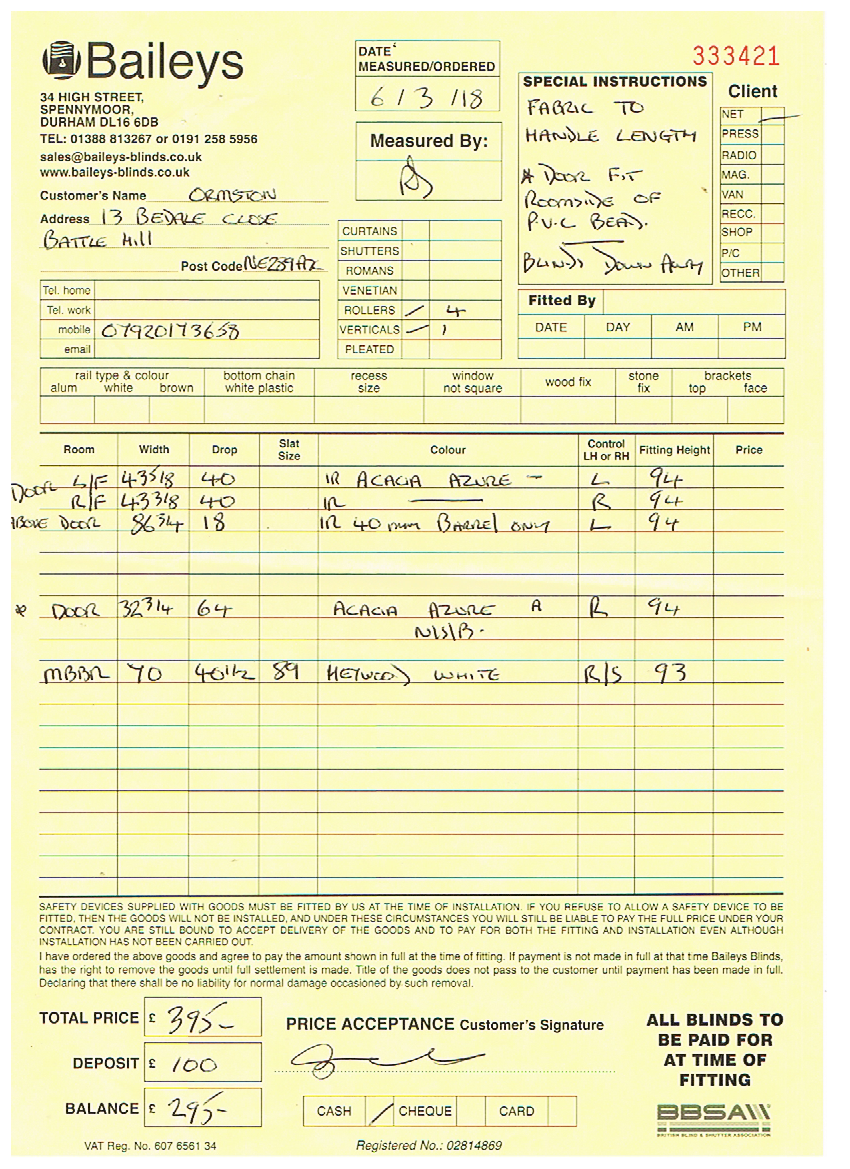 Baileys
34 HIGH STREET,
SPENNYMOOR,
DURHAM DL16 6DB
TEL: 01388 813267 or 0191 258 5956
sales@baileys-blinds.co.uk
www.baileys-blinds.co.uk
Customer's Name ORMSTON
Address 13 BEDALE CLOSE
BATTLE HILL
Post Code NE289AZ
Tel. home
Tel. work
mobile 07920173658
email
DATE
MEASURED/ORDERED
6/3/18
Measured By:
CURTAINS
SHUTTERS
ROMANS
VENETIAN
ROLLERS / 4
VERTICALS / 1
PLEATED
333421
SPECIAL INSTRUCTIONS
FABRIC TO
HANDLE LENGTH
* DOOR FIT
ROOMSIDE OF
P.V.C BEAD.
BLINDS DOWN AWAY
Client
NET
PRESS
RADIO
MAG.
VAN
RECC.
SHOP
P/C
OTHER
Fitted By
DATE DAY AM PM
rail type & colour bottom chain recess window wood fix stone brackets
alum white brown white plastic size not square fix top face
Room Width Drop Slat Size Colour Control LH or RH Fitting Height Price
DOOR L/F 43 5/8 40 IR ACACIA AZURE - L 94
R/F 43 3/8 40 IR R 94
ABOVE DOOR 86 3/4 18 IR 40 mm BARREL ONLY L 94
* DOOR 32 3/4 64 ACACIA AZURE A R 94
N/S/B.
MBBR 70 40 1/2 89 HEYWOOD WHITE R/S 93
SAFETY DEVICES SUPPLIED WITH GOODS MUST BE FITTED BY US AT THE TIME OF INSTALLATION. IF YOU REFUSE TO ALLOW A SAFETY DEVICE TO BE
FITTED, THEN THE GOODS WILL NOT BE INSTALLED, AND UNDER THESE CIRCUMSTANCES YOU WILL STILL BE LIABLE TO PAY THE FULL PRICE UNDER YOUR
CONTRACT. YOU ARE STILL BOUND TO ACCEPT DELIVERY OF THE GOODS AND TO PAY FOR BOTH THE FITTING AND INSTALLATION EVEN ALTHOUGH
INSTALLATION HAS NOT BEEN CARRIED OUT.
I have ordered the above goods and agree to pay the amount shown in full at the time of fitting. If payment is not made in full at that time Baileys Blinds,
has the right to remove the goods until full settlement is made. Title of the goods does not pass to the customer until payment has been made in full.
Declaring that there shall be no liability for normal damage occasioned by such removal.
TOTAL PRICE £ 395-
DEPOSIT £ 100
BALANCE £ 295-
PRICE ACCEPTANCE Customer's Signature
CASH / CHEQUE CARD
ALL BLINDS TO
BE PAID FOR
AT TIME OF
FITTING
BBSA
BRITISH BLIND & SHUTTER ASSOCIATION
VAT Reg. No. 607 6561 34
Registered No.: 02814869